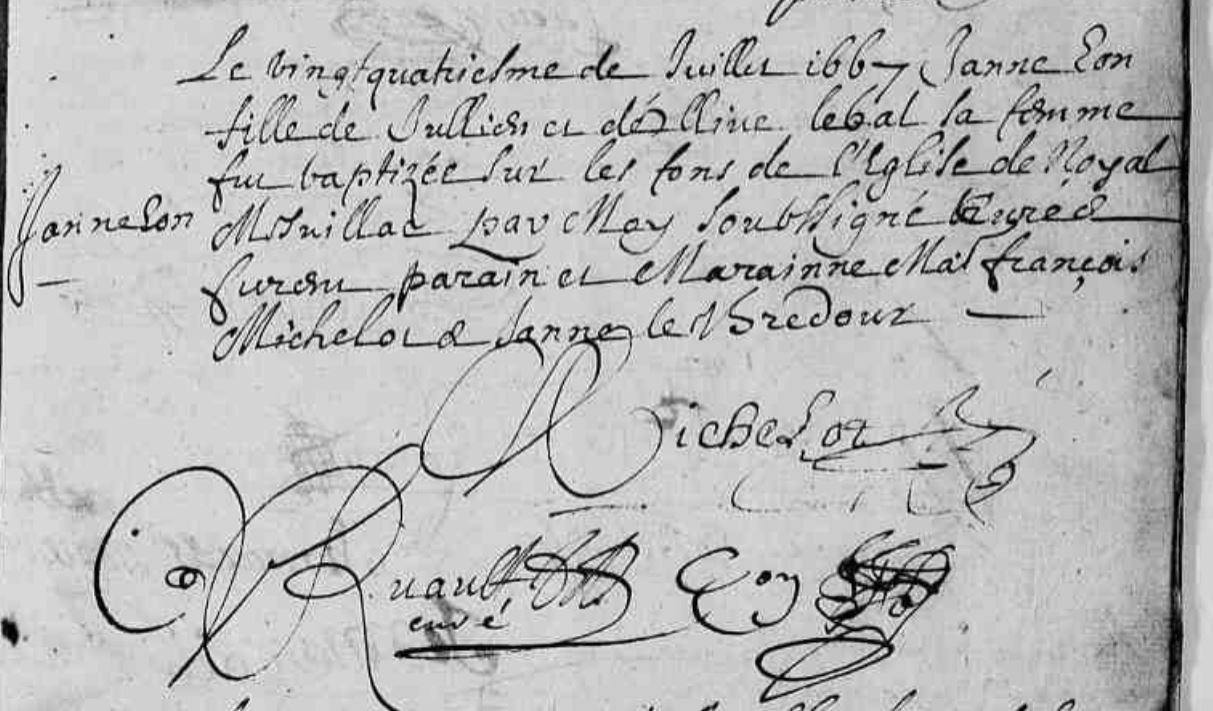 Le vingtquatriesme de Juillet 1667 Janne Eon
fille de Jullien et d'élline lebal sa femme
fut baptizée sur les fons de l'Eglise de Noyal
Janne Eon
Musuillac par Moy soubssigné Curé &
furent parain et Marainne Mas françois
Michelot & Janne le Bredour
Michelot
Ruault Eon
curé